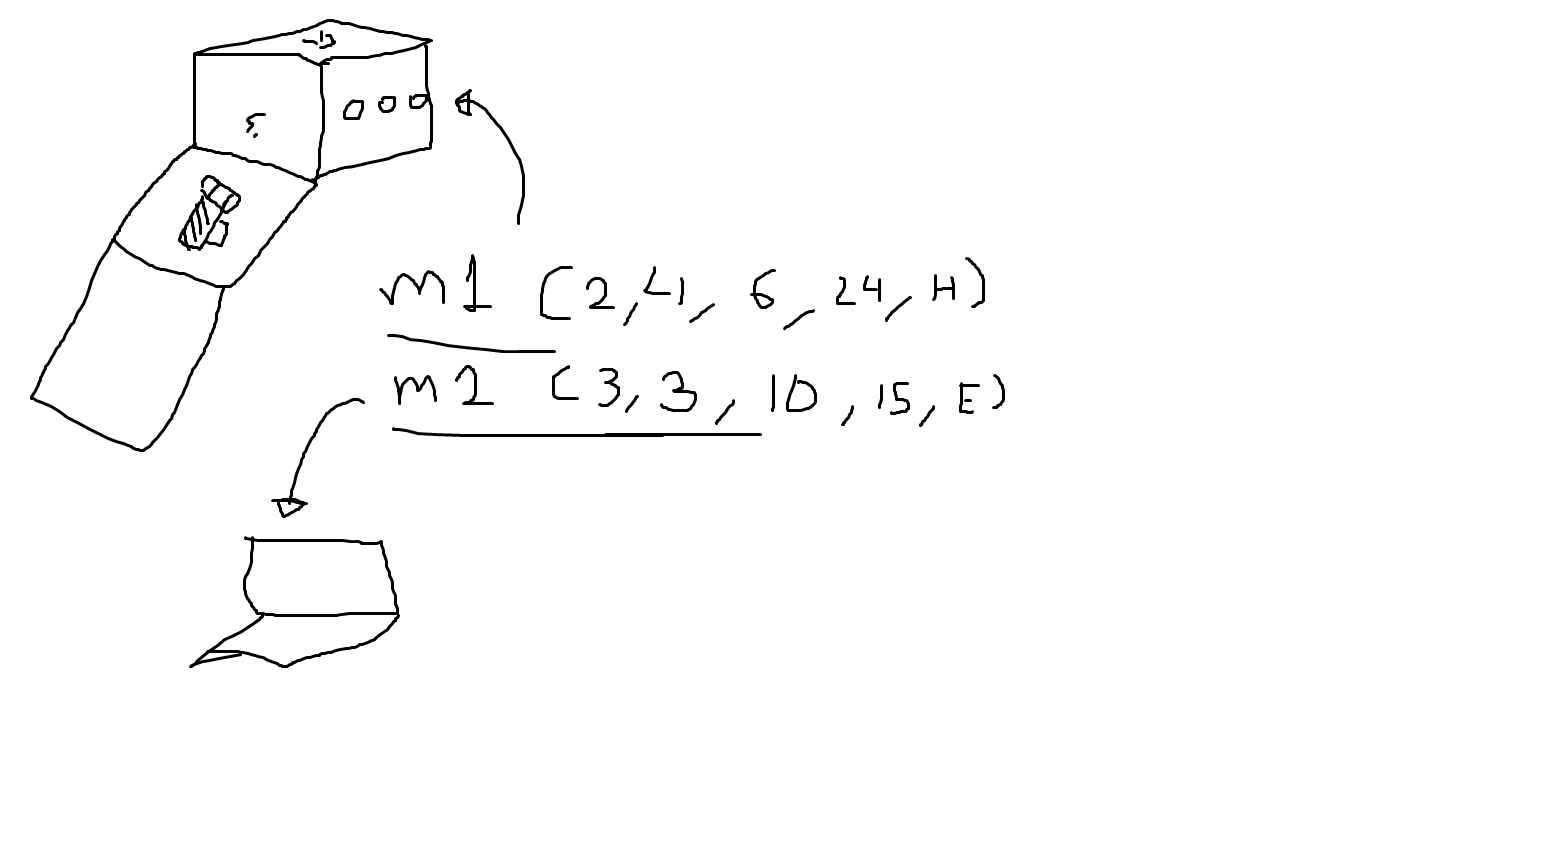 m1 (2, 4, 6, 24, H)
m2 (3, 3, 10, 15, E)